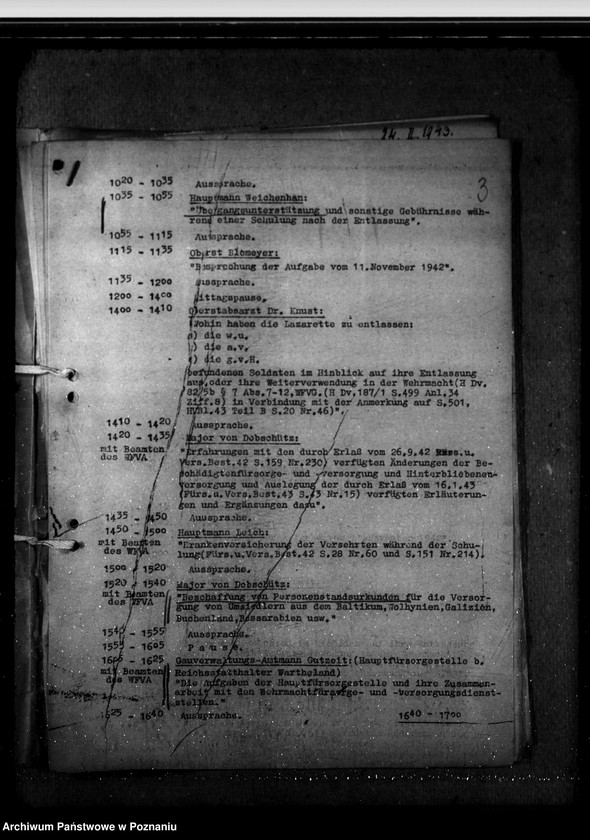 24. II. 1943.
3
10²⁰ - 10³⁵ Aussprache.
10³⁵ - 10⁵⁵ Hauptmann Weichenhan:
"Übergangsunterstützung und sonstige Gebührnisse wäh-
rend einer Schulung nach der Entlassung".
10⁵⁵ - 11¹⁵ Aussprache.
11¹⁵ - 11³⁵ Oberst Blomeyer:
"Besprechung der Aufgabe vom 11.November 1942".
11³⁵ - 12⁰⁰ Aussprache.
12⁰⁰ - 14⁰⁰ Mittagspause.
14⁰⁰ - 14¹⁰ Oberstabsarzt Dr. Knust:
"Wohin haben die Lazarette zu entlassen:
a) die w.u.
b) die a.v.
c) die g.v.H.
befundenen Soldaten im Hinblick auf ihre Entlassung
aus, oder ihre Weiterverwendung in der Wehrmacht(H Dv.
82/5b § 7 Abs.7-12,WFVG.(H Dv.187/1 S.499 Anl.34
Ziff.8) in Verbindung mit der Anmerkung auf S.501,
HVBl.43 Teil B S.20 Nr.46)".
14¹⁰ - 14²⁰ Aussprache.
14²⁰ - 14³⁵ Major von Dobschütz:
mit Beamten "Erfahrungen mit den durch Erlaß vom 26.9.42 Fürs.u.
des WFVA Vers.Best.42 S.159 Nr.230) verfügten Änderungen der Be-
schädigtenfürsorge- und -versorgung und Hinterbliebenen-
versorgung und Auslegung der durch Erlaß vom 16.1.43
(Fürs.u.Vers.Best.43 S.43 Nr.15) verfügten Erläuterun-
gen und Ergänzungen dazu".
14³⁵ - 14⁵⁰ Aussprache.
14⁵⁰ - 15⁰⁰ Hauptmann Leich:
mit Beamten "Krankenversicherung der Versehrten während der Schu-
des WFVA lung(Fürs.u.Vers.Best.42 S.28 Nr.60 und S.151 Nr.214).
15⁰⁰ - 15²⁰ Aussprache.
15²⁰ - 15⁴⁰ Major von Dobschütz:
mit Beamten "Beschaffung von Personenstandsurkunden für die Versor-
des WFVA gung von Umsiedlern aus dem Baltikum,Wolhynien,Galizien,
Buchenland,Bessarabien usw."
15⁴⁰ - 15⁵⁵ Aussprache.
15⁵⁵ - 16⁰⁵ P a u s e.
16⁰⁵ - 16²⁵ Gauverwaltungs-Amtmann Gutzeit:(Hauptfürsorgestelle b.
mit Beamten Reichsstatthalter Wartheland)
des WFVA "Die Aufgaben der Hauptfürsorgestelle und ihre Zusammen-
arbeit mit den Wehrmachtfürsorge- und -versorgungsdienst-
stellen."
16²⁵ - 16⁴⁰ Aussprache. 16⁴⁰ - 17⁰⁰
Archiwum Państwowe w Poznaniu